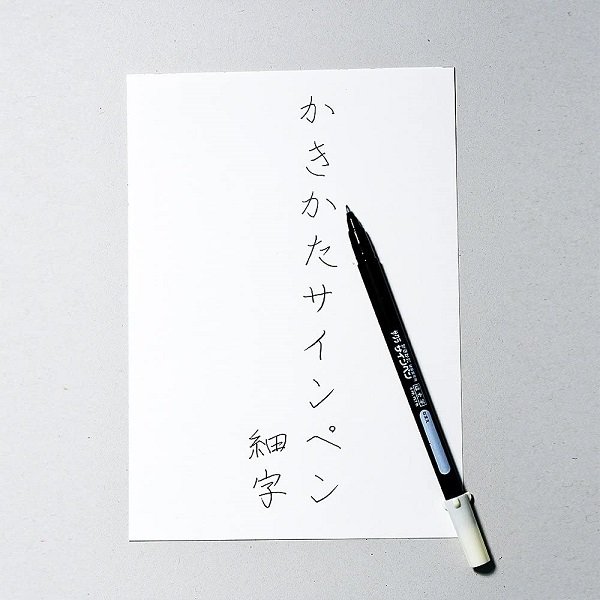 かきかたサインペン
細字
サクラ サインペン